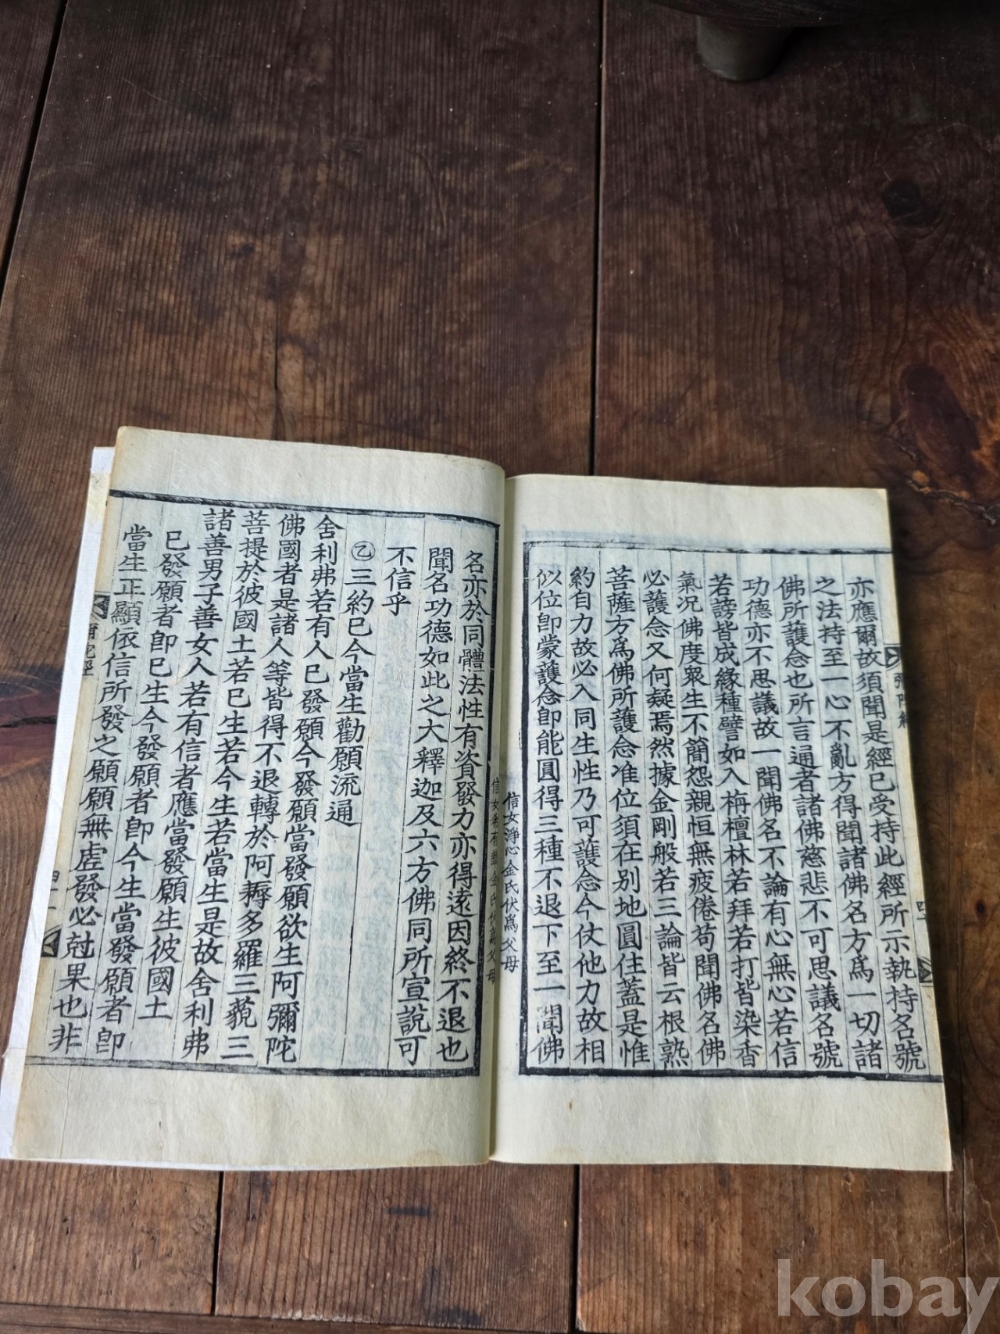 彌陀經
四十
亦應爾故須聞是經已受持此經所示執持名號
之法持至一心不亂方得聞諸佛名方爲一切諸
佛所護念也所言通者諸佛慈悲不可思議名號
功德亦不思議故一聞佛名不論有心無心若信
若謗皆成緣種譬如入栴檀林若拜若打皆染香
氣況佛度衆生不簡怨親恒無疲倦苟聞佛名佛
必護念又何疑焉然據金剛般若三論皆云根熟
菩薩方爲佛所護念准位須在別地圓住蓋是惟
約自力故必入同生性乃可護念今仗他力故相
似位卽蒙護念卽能圓得三種不退下至一聞佛
信女淨心金氏伏爲父母
名亦於同體法性有資發力亦得遠因終不退也
聞名功德如此之大釋迦及六方佛同所宣說可
不信乎
㊁三約已今當生勸願流通
舍利弗若有人已發願今發願當發願欲生阿彌陀
佛國者是諸人等皆得不退轉於阿耨多羅三藐三
菩提於彼國土若已生若今生若當生是故舍利弗
諸善男子善女人若有信者應當發願生彼國土
已發願者卽已生今發願者卽今生當發願者卽
當生正顯依信所發之願願無虛發必尅果也非
彌陀經
四十一